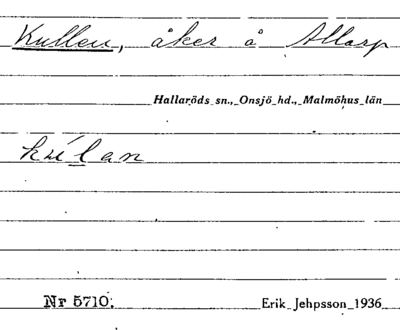 Kullen, åker å Allarp
Hallaröds sn., Onsjö hd., Malmöhus län
Nr 5710. Erik Jehpsson 1936